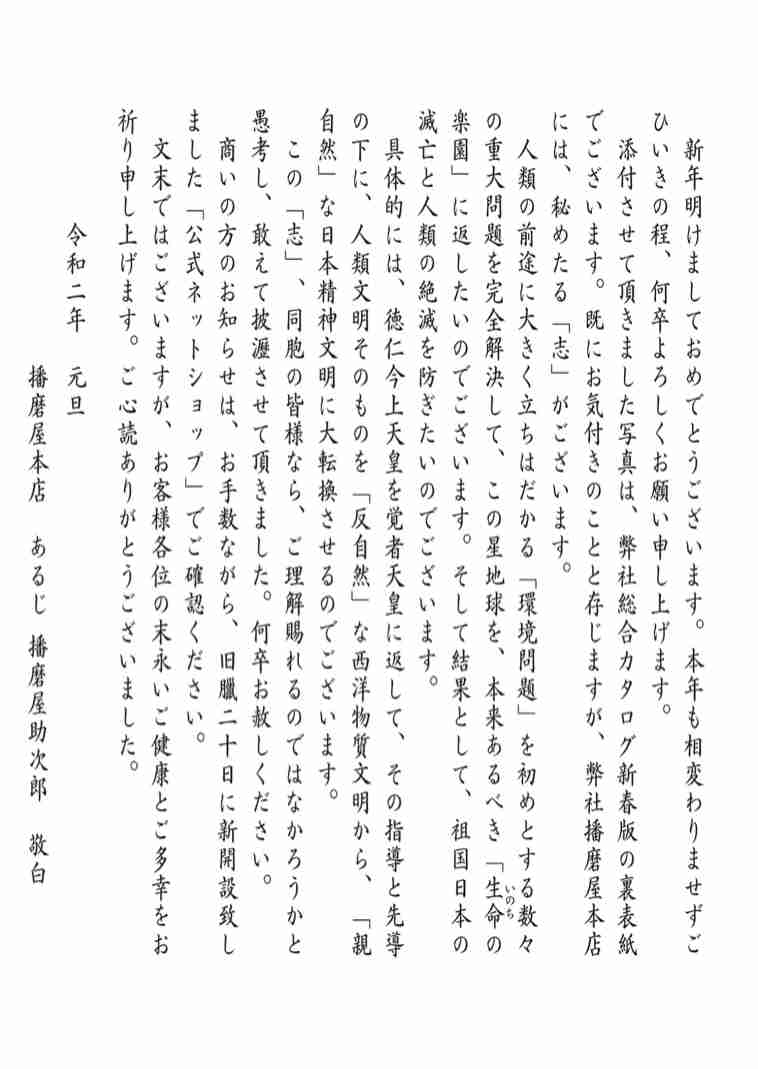 新年明けましておめでとうございます。本年も相変わりませずご
ひいきの程、何卒よろしくお願い申し上げます。
添付させて頂きました写真は、弊社総合カタログ新春版の裏表紙
でございます。既にお気付きのことと存じますが、弊社播磨屋本店
には、秘めたる「志」がございます。
人類の前途に大きく立ちはだかる「環境問題」を初めとする数々
の重大問題を完全解決して、この星地球を、本来あるべき「生命の
いのち
楽園」に返したいのでございます。そして結果として、祖国日本の
滅亡と人類の絶滅を防ぎたいのでございます。
具体的には、徳仁今上天皇を覚者天皇に返して、その指導と先導
の下に、人類文明そのものを「反自然」な西洋物質文明から、「親
自然」な日本精神文明に大転換させるのでございます。
この「志」、同胞の皆様なら、ご理解賜れるのではなかろうかと
愚考し、敢えて披瀝させて頂きました。何卒お赦しください。
商いの方のお知らせは、お手数ながら、旧臘二十日に新開設致し
ました「公式ネットショップ」でご確認ください。
文末ではございますが、お客様各位の末永いご健康とご多幸をお
祈り申し上げます。ご心読ありがとうございました。
令和二年 元旦
播磨屋本店 あるじ 播磨屋助次郎 敬白